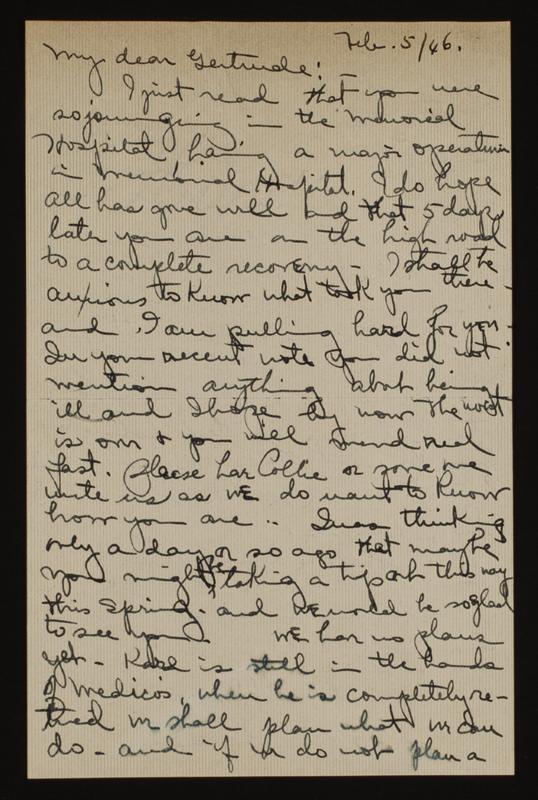 Feb. 5/46.
My dear Gertrude: -
I just read that you were
sojourning in the Memorial
Hospital having a major operation
in Memorial Hospital. I do hope
all has gone well and that 5 days
later you are on the high road
to a complete recovery - I shall be
anxious to know what took you there -
and I am pulling hard for you -
In your recent note you did not
mention anything about being
ill and I hope by now the worst
is over & you will mend real
fast. Please have Collie or some one
write us as WE do want to know
how you are .. I was thinking
only a day or so ago that maybe
you might be taking a trip out this way
this Spring - and WE would be so glad
to see you. WE have no plans
yet - Karl is still in the hands
of medicos, when he is completely re-
tired we shall plan what we can
do - and if we do not plan a